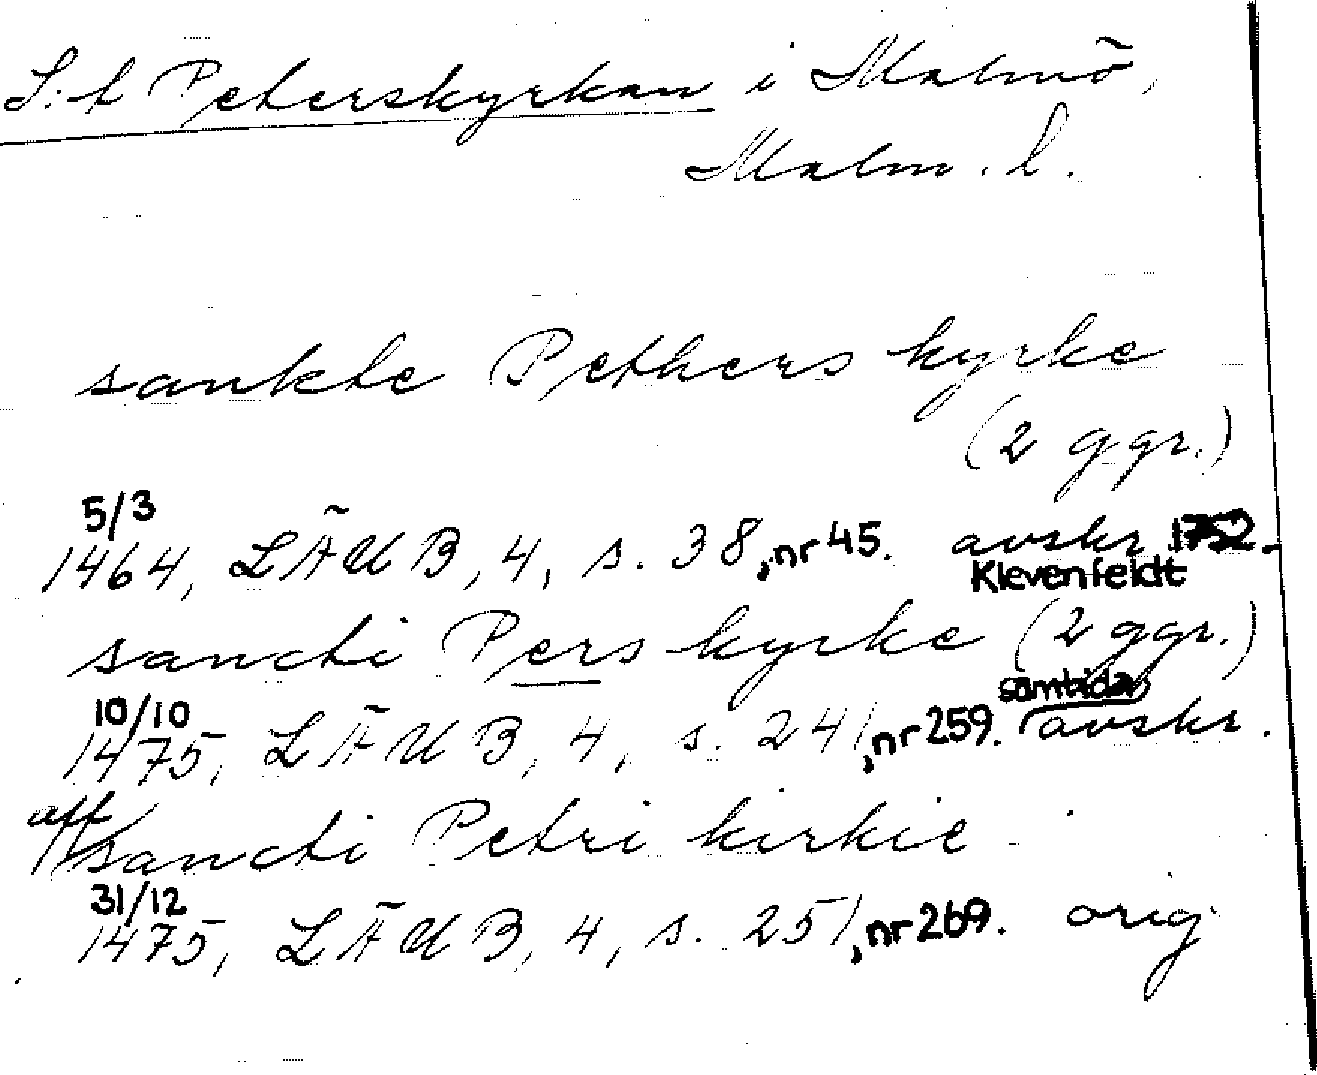 S:t Peterskyrkan i Malmö,
Malm. l.
sankte Pethers kyrke
(2 ggr.)
5/3
1464, LÄUB, 4, s. 38, nr 45. avskr 1752.
Klevenfeldt
sancti Pers kyrke (2 ggr.)
10/10 samtida
1475, LÄUB, 4, s. 241, nr 259. avskr.
aff sancti Petri kirkie
31/12
1475, LÄUB, 4, s. 251, nr 269. orig